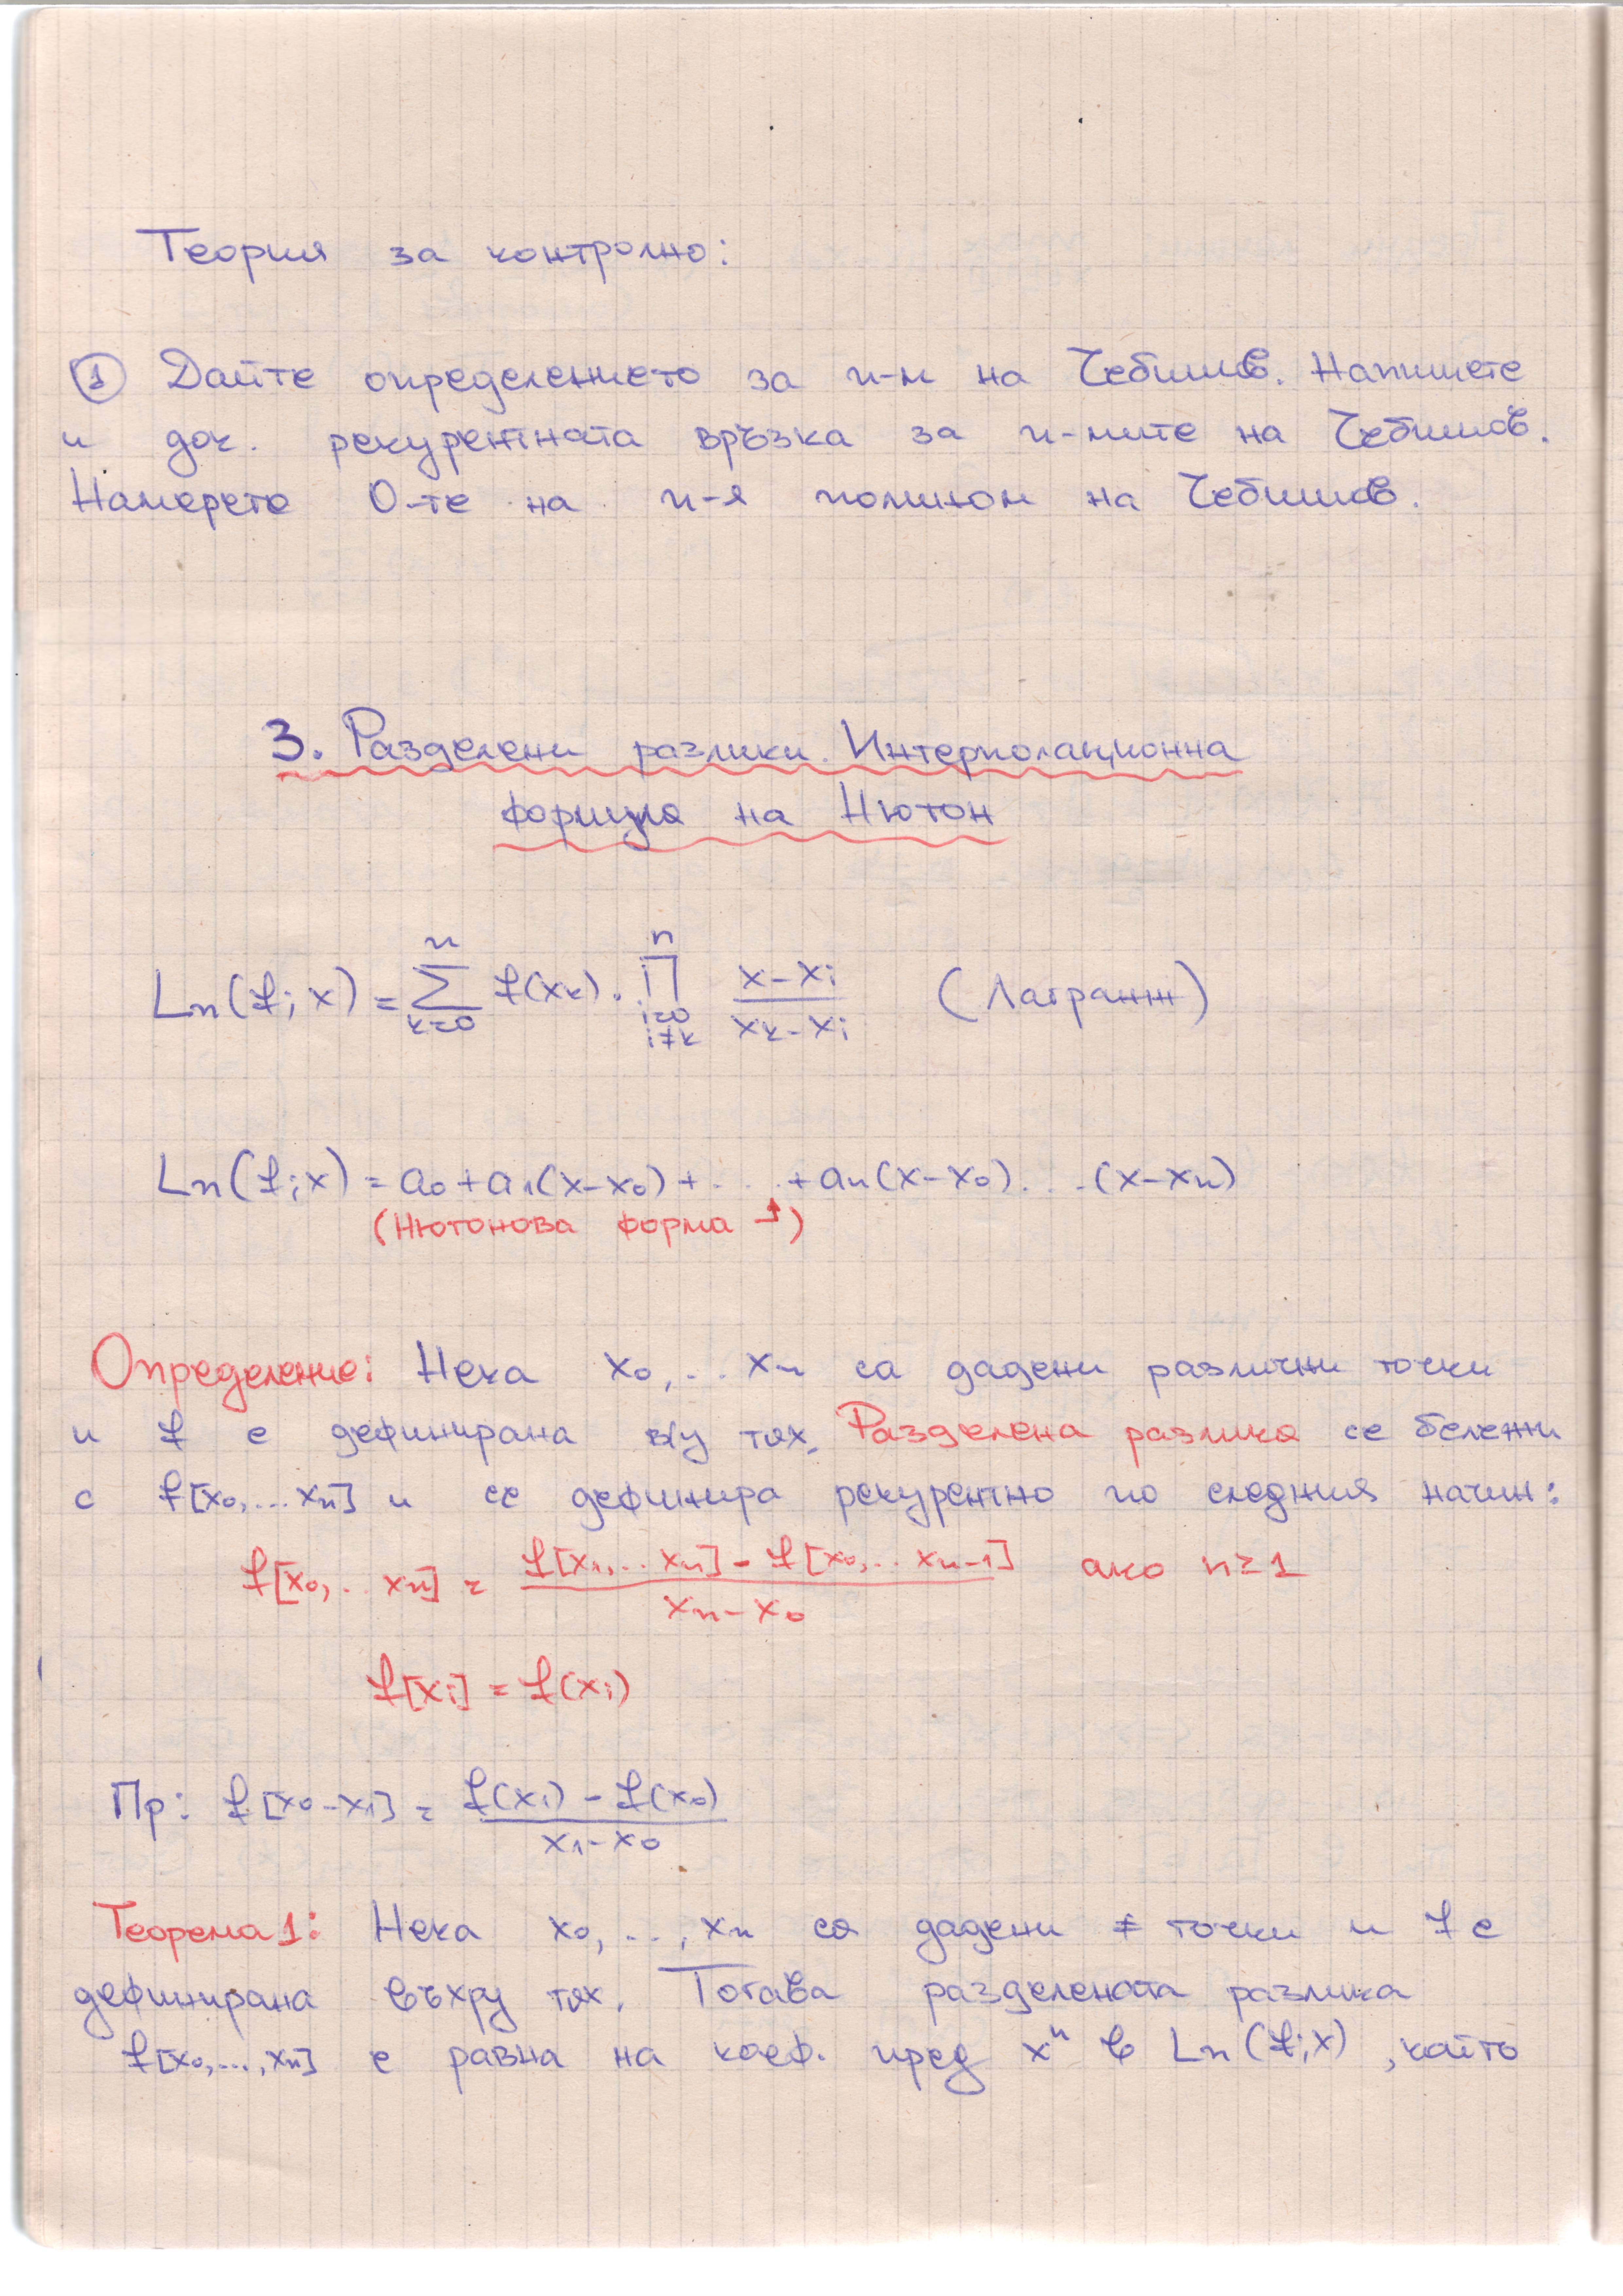 Теория за контролно:
① Дайте определението за п-м на Чебишов. Напишете
и док. рекурентната връзка за п-мите на Чебишов.
Намерете 0-те на n-я полином на Чебишов.
3. Разделени разлики. Интерполационна
формула на Нютон
Ln(f;x) = ∑_{k=0}^{n} f(xk) . ∏_{i=0, i≠k}^{n} (x-xi)/(xk-xi) (Лагранж)
Ln(f;x) = a0+a1(x-x0)+...+an(x-x0)...(x-xn)
(Нютонова форма ↑)
Определение: Нека x0,... xn са дадени различни точки
и f е дефинирана в/у тях. Разделена разлика се бележи
с f[x0,...xn] и се дефинира рекурентно по следния начин:
f[x0,.. xn] = (f[x1,.. xn] - f[x0,.. xn-1])/(xn-x0) ако n≥1
f[xi] = f(xi)
Пр: f[x0-x1] = (f(x1) - f(x0))/(x1-x0)
Теорема 1: Нека x0,...,xn са дадени ≠ точки и f е
дефинирана върху тях. Тогава разделената разлика
f[x0,...,xn] е равна на коеф. пред x^n в Ln(f;x), който